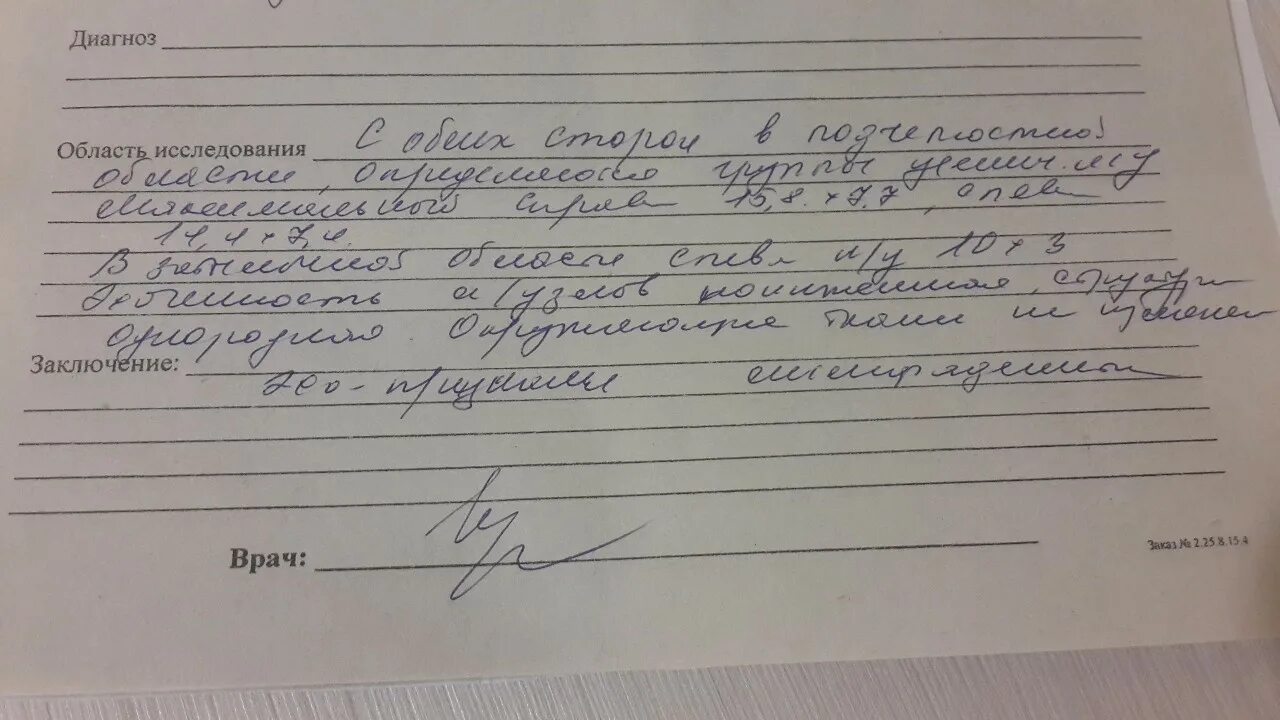 Диагноз
Область исследования С обеих сторон в подчелюстной
области, определяются группы увелич. л/у
Максимальный справа 15,8 × 7,7, слева
14,4 × 7,4
В затылочной области слева л/у 10 × 3
Эхогенность л/узлов пониженная, структура
однородная. Окружающие ткани не изменены
Заключение:
Эхо-признаки лимфаденита
Врач:
Заказ № 2.25.8.15.4